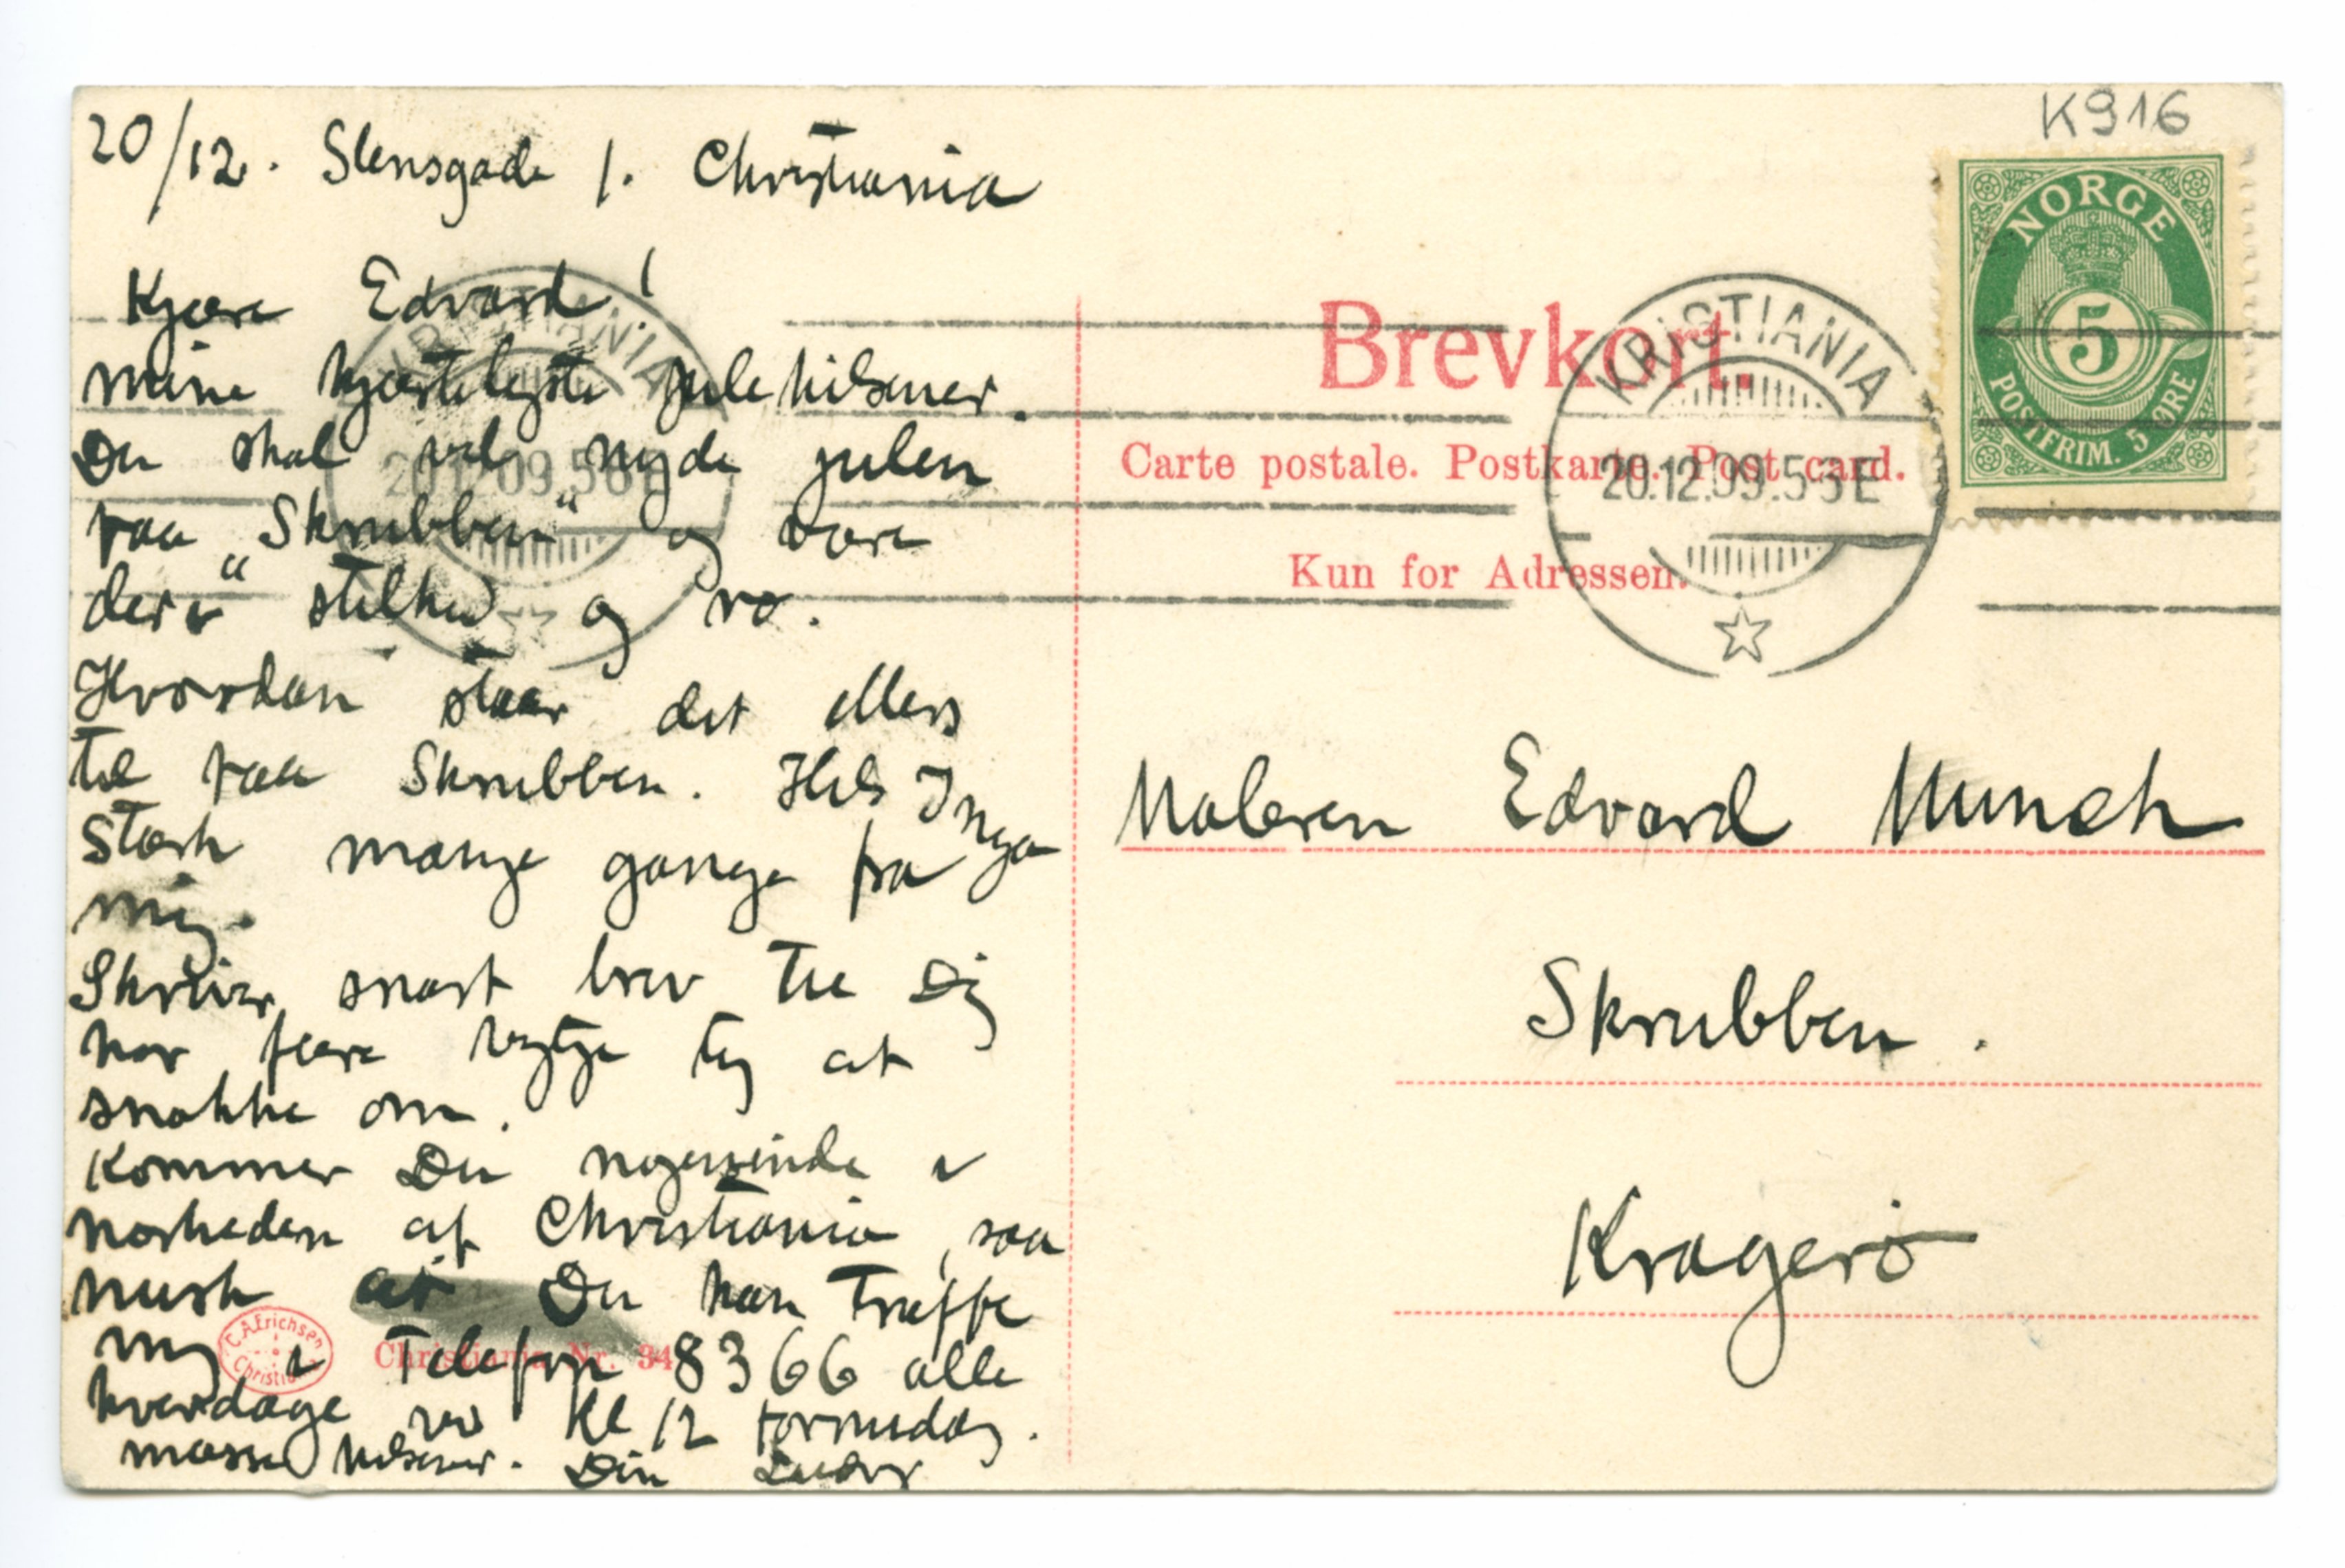 K916
20/12. Stensgade 1. Christiania
Kjære Edvard!
mine hjærteligste julehilsener.
Du skal vel nyde julen
paa "Skrubben" og være
der i stilhed og ro.
Hvordan staar det ellers
til paa Skrubben. Hils Inga
Stærk mange gange fra
mig.
Skriver snart brev til Dig
har flere ting at
snakke om.
Kommer Du nogensinde i
nærheden af Christiania, saa
husk at Du kan træffe
mig i Telefon 8366 alle
hverdage ved Kl 12 formiddag.
masse hilsener. Din Ludvig
C.A.Erichsen
Christiania
Christiania Nr. 34
NORGE
5
POSTFRIM. 5 ØRE
KRISTIANIA
20.12.09.5-6E
KRISTIANIA
20.12.09.5-6E
Brevkort.
Carte postale. Postkarte. Post card.
Kun for Adressen.
Maleren Edvard Munch
Skrubben.
Kragerö